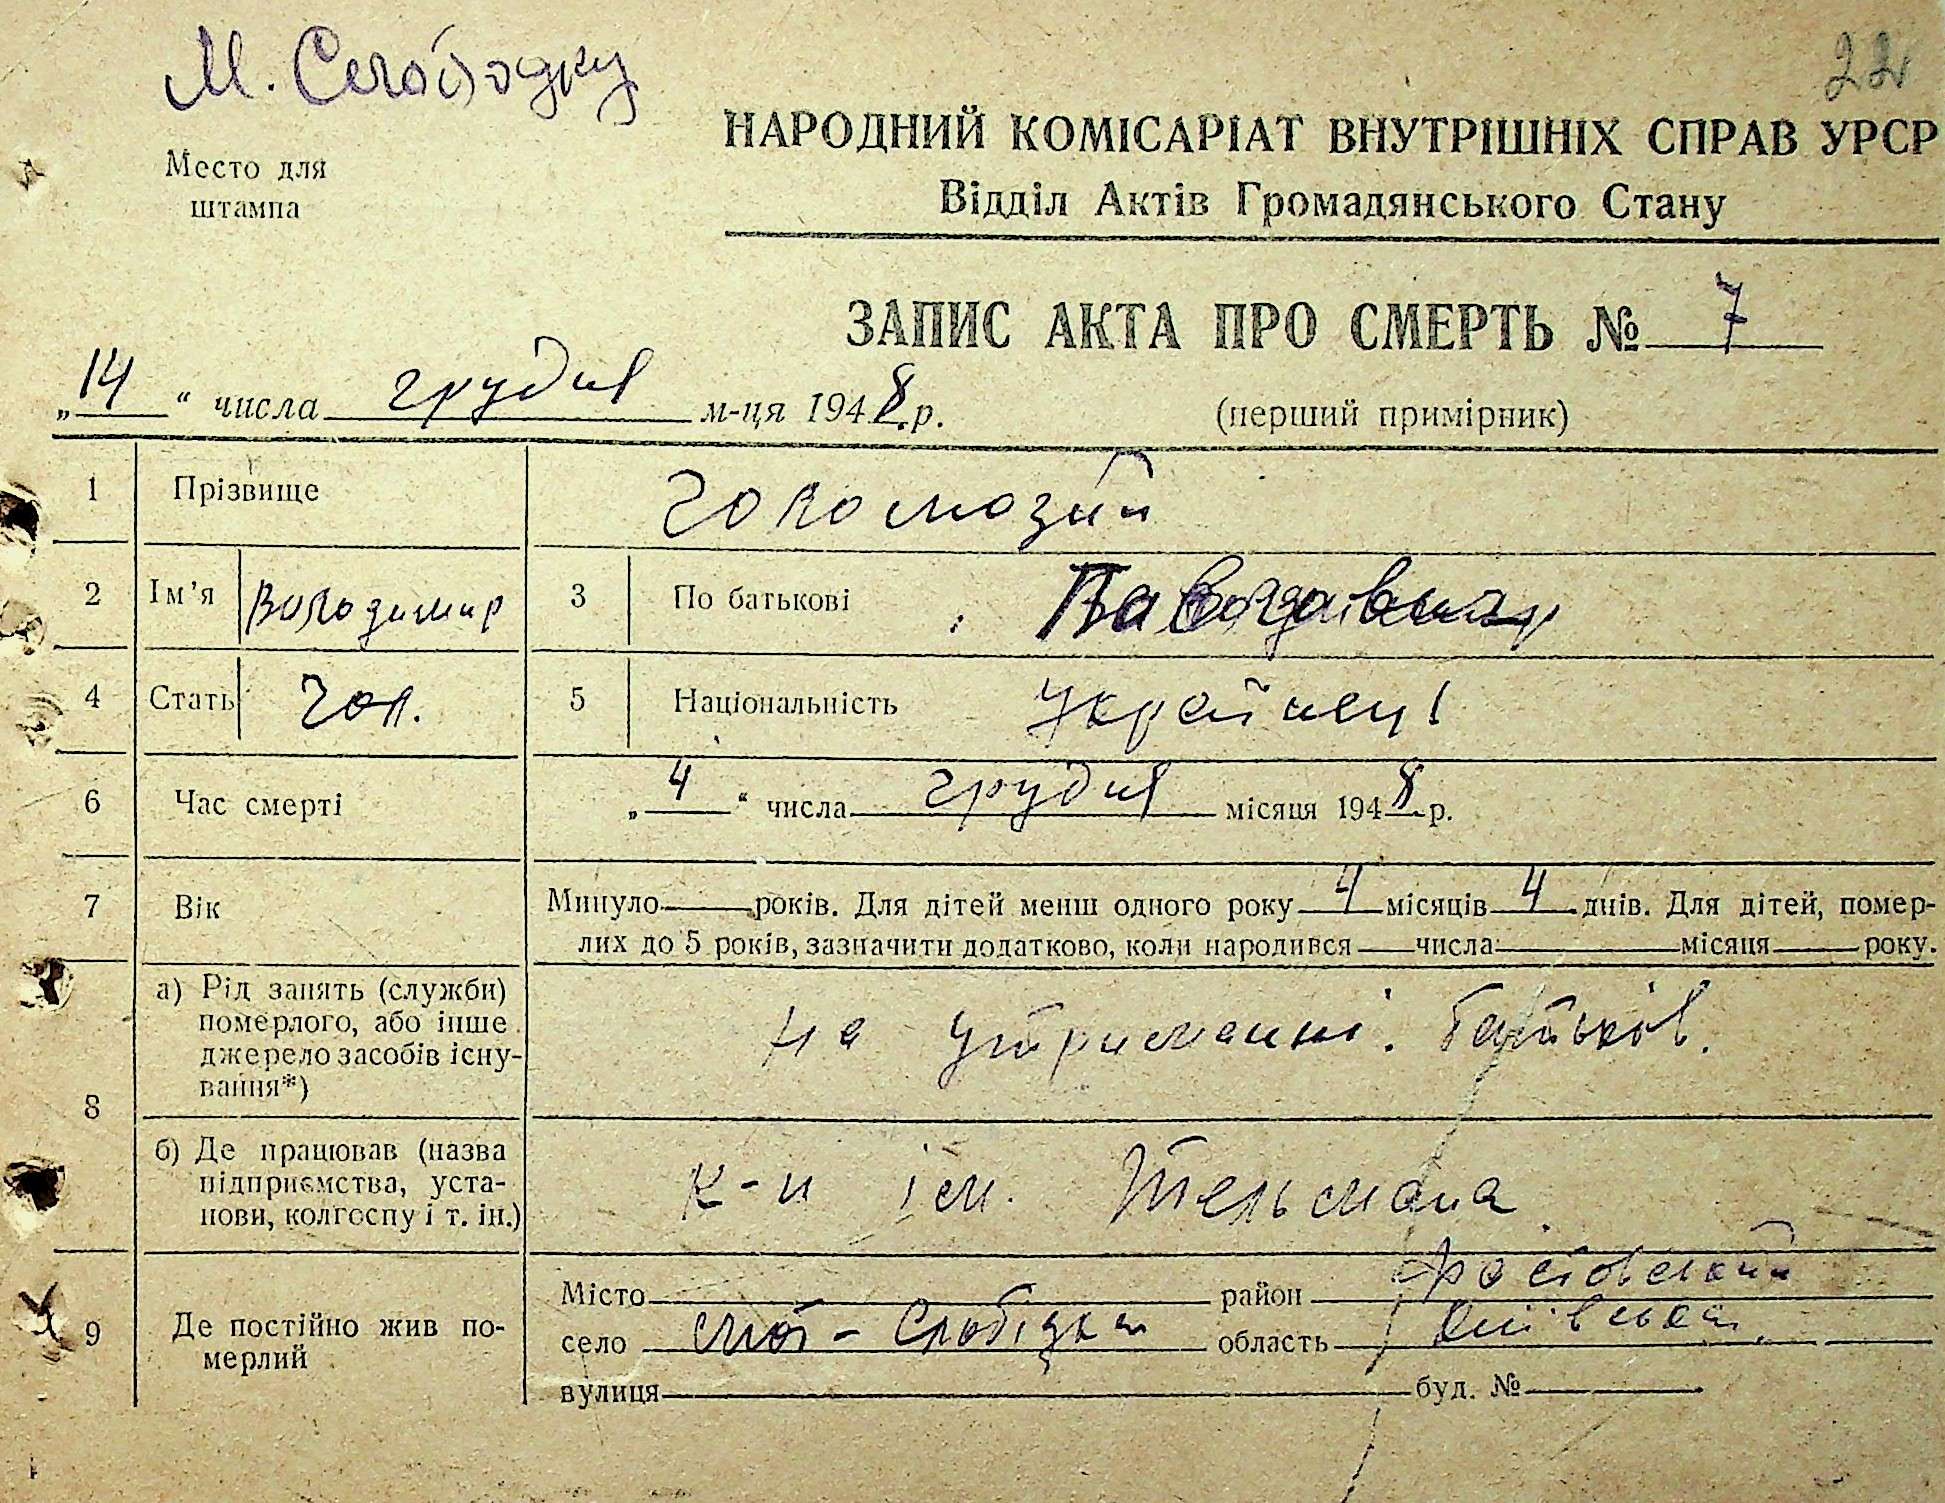 М. Слободку
22
Место для
штампа
НАРОДНИЙ КОМІСАРІАТ ВНУТРІШНІХ СПРАВ УРСР
Відділ Актів Громадянського Стану
ЗАПИС АКТА ПРО СМЕРТЬ № 7
„14“ числа грудня м-ця 1948 р.
(перший примірник)
1 Прізвище
2 Ім’я Володимир 3 По батькові
4 Стать Чол. 5 Національність Українець
6 Час смерті „4“ числа грудня місяця 1948 р.
7 Вік Минуло років. Для дітей менш одного року 4 місяців 4 днів. Для дітей, помер-
лих до 5 років, зазначити додатково, коли народився числа місяця року.
8 а) Рід занять (служби)
померлого, або інше
джерело засобів існу-
вання*)
на утриманні батьків.
б) Де працював (назва
підприємства, уста-
нови, колгоспу і т. ін.)
к-п ім. Тельмана
9 Де постійно жив по-
мерлий
Місто район
село Слобідка область Київська
вулиця буд. №